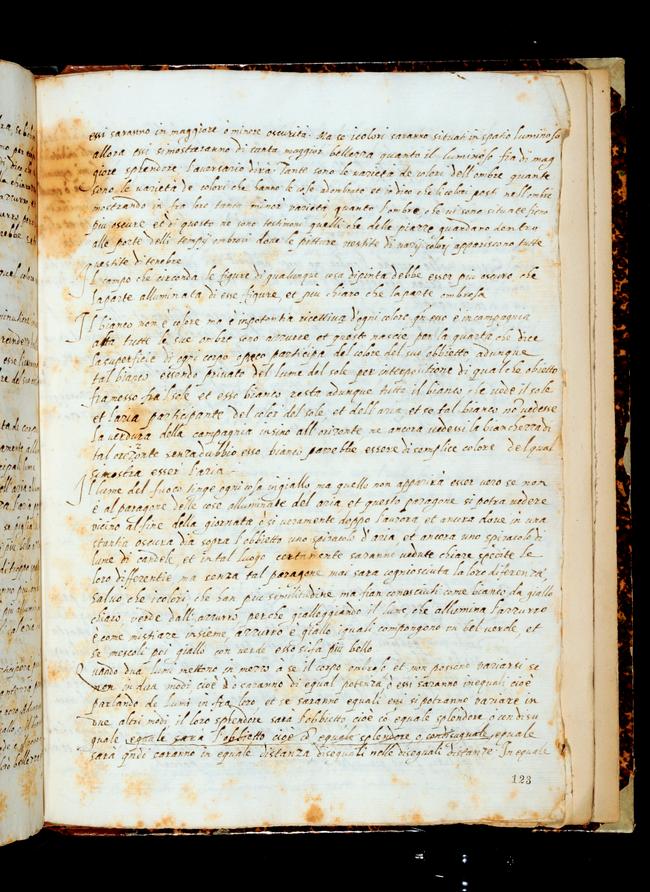 essi saranno in maggiore o minore oscurità. Ma se i colori saranno situati in spatio luminoso
allora essi si mostraranno di tanta maggior bellezza quanto il luminoso fia di mag
giore splendore. L'aversario dirà. Tante sono le varietà de colori dell'ombre quante
sono le varietà de colori che hanno le cose adombrate et io dico che li colori posti nell'ombre
mostrando in fra loro tanto minor varietà quanto l'ombre, che vi sono situate, sieno
piu oscure, et di questo ne sono testimoni quelli che delle piazze guardano dentro
alle porte delli tempij ombrosi dove le pitture vestite di varij colori appariscono tutte
vestite di tenebre
Il campo che circonda le figure di qualunque cosa dipinta debbe esser piu oscuro che
la parte alluminata di esse figure, et piu chiaro che la parte ombrosa
Il bianco non è colore mo è in potentia ricettiva d'ogni colore, qn esso è in campagnia
alta tutte le sue ombre sono azzurre et questo nascie per la quarta che dice
la superficie di ogni corpo opaco participa del colore del suo obbietto adunque
tal bianco essendo privato del lume del sole per interpositione di qual che obietto
framesso fra'l sole et esso bianco resta adunque tutto il bianco che vede il sole
et l'aria participante del color del sole et dell'aria, et se tal bianco no vedesse
la verdura della campagnia insino all'orizonte ne ancora vedessi la bianchezza di
tal orizonte senza dubbio esso bianco parebbe essere di semplice colore del qual
si mostra esser l'aria
Il lume del fuoco tinge ogni cosa in giallo ma quello non apparirà esser vero se non
è al paragone delle cose alluminate del aria et questo paragone si potra vedere
vicino al fine della giornata o si veramente doppo l'aurora et ancora dove in una
stantia oscura dia sopra l'obbietto uno spiracolo d'aria et ancora uno spiracolo di
lume di candele, et in tal luogo certamente saranno vedute chiare spedite le
loro differentie ma senza tal paragone mai sara cogniosciuta la loro diferenza
salvo che i colori che han piu similitudine ma fian conosciuti come bianco da giallo
chiaro verde dall'azzurro perche gialleggiando il lume che allumina l'azzurro
è come mistiare insieme azzurro e giallo iquali compongono un bel verde, et
se mescoli poi giallo con verde esso si fa piu bello
Quando dua lumi mettono in mezzo a se il corpo ombroso et non possono variarsi se
non in dua modi cioè o saranno di equal potenza o essi saranno inequali cioè
parlando de lumi in fra loro, et se saranno equali essi si potranno variare in
due altri modi il loro splendore sara l'obbietto cioè co equale splendore o con disu
quale equale sarà l'obbietto cioè co equale splendore o, con disuquale, equale
sarà qndi saranno in equale distanza disequali nelle disequali distanze. In equale
123